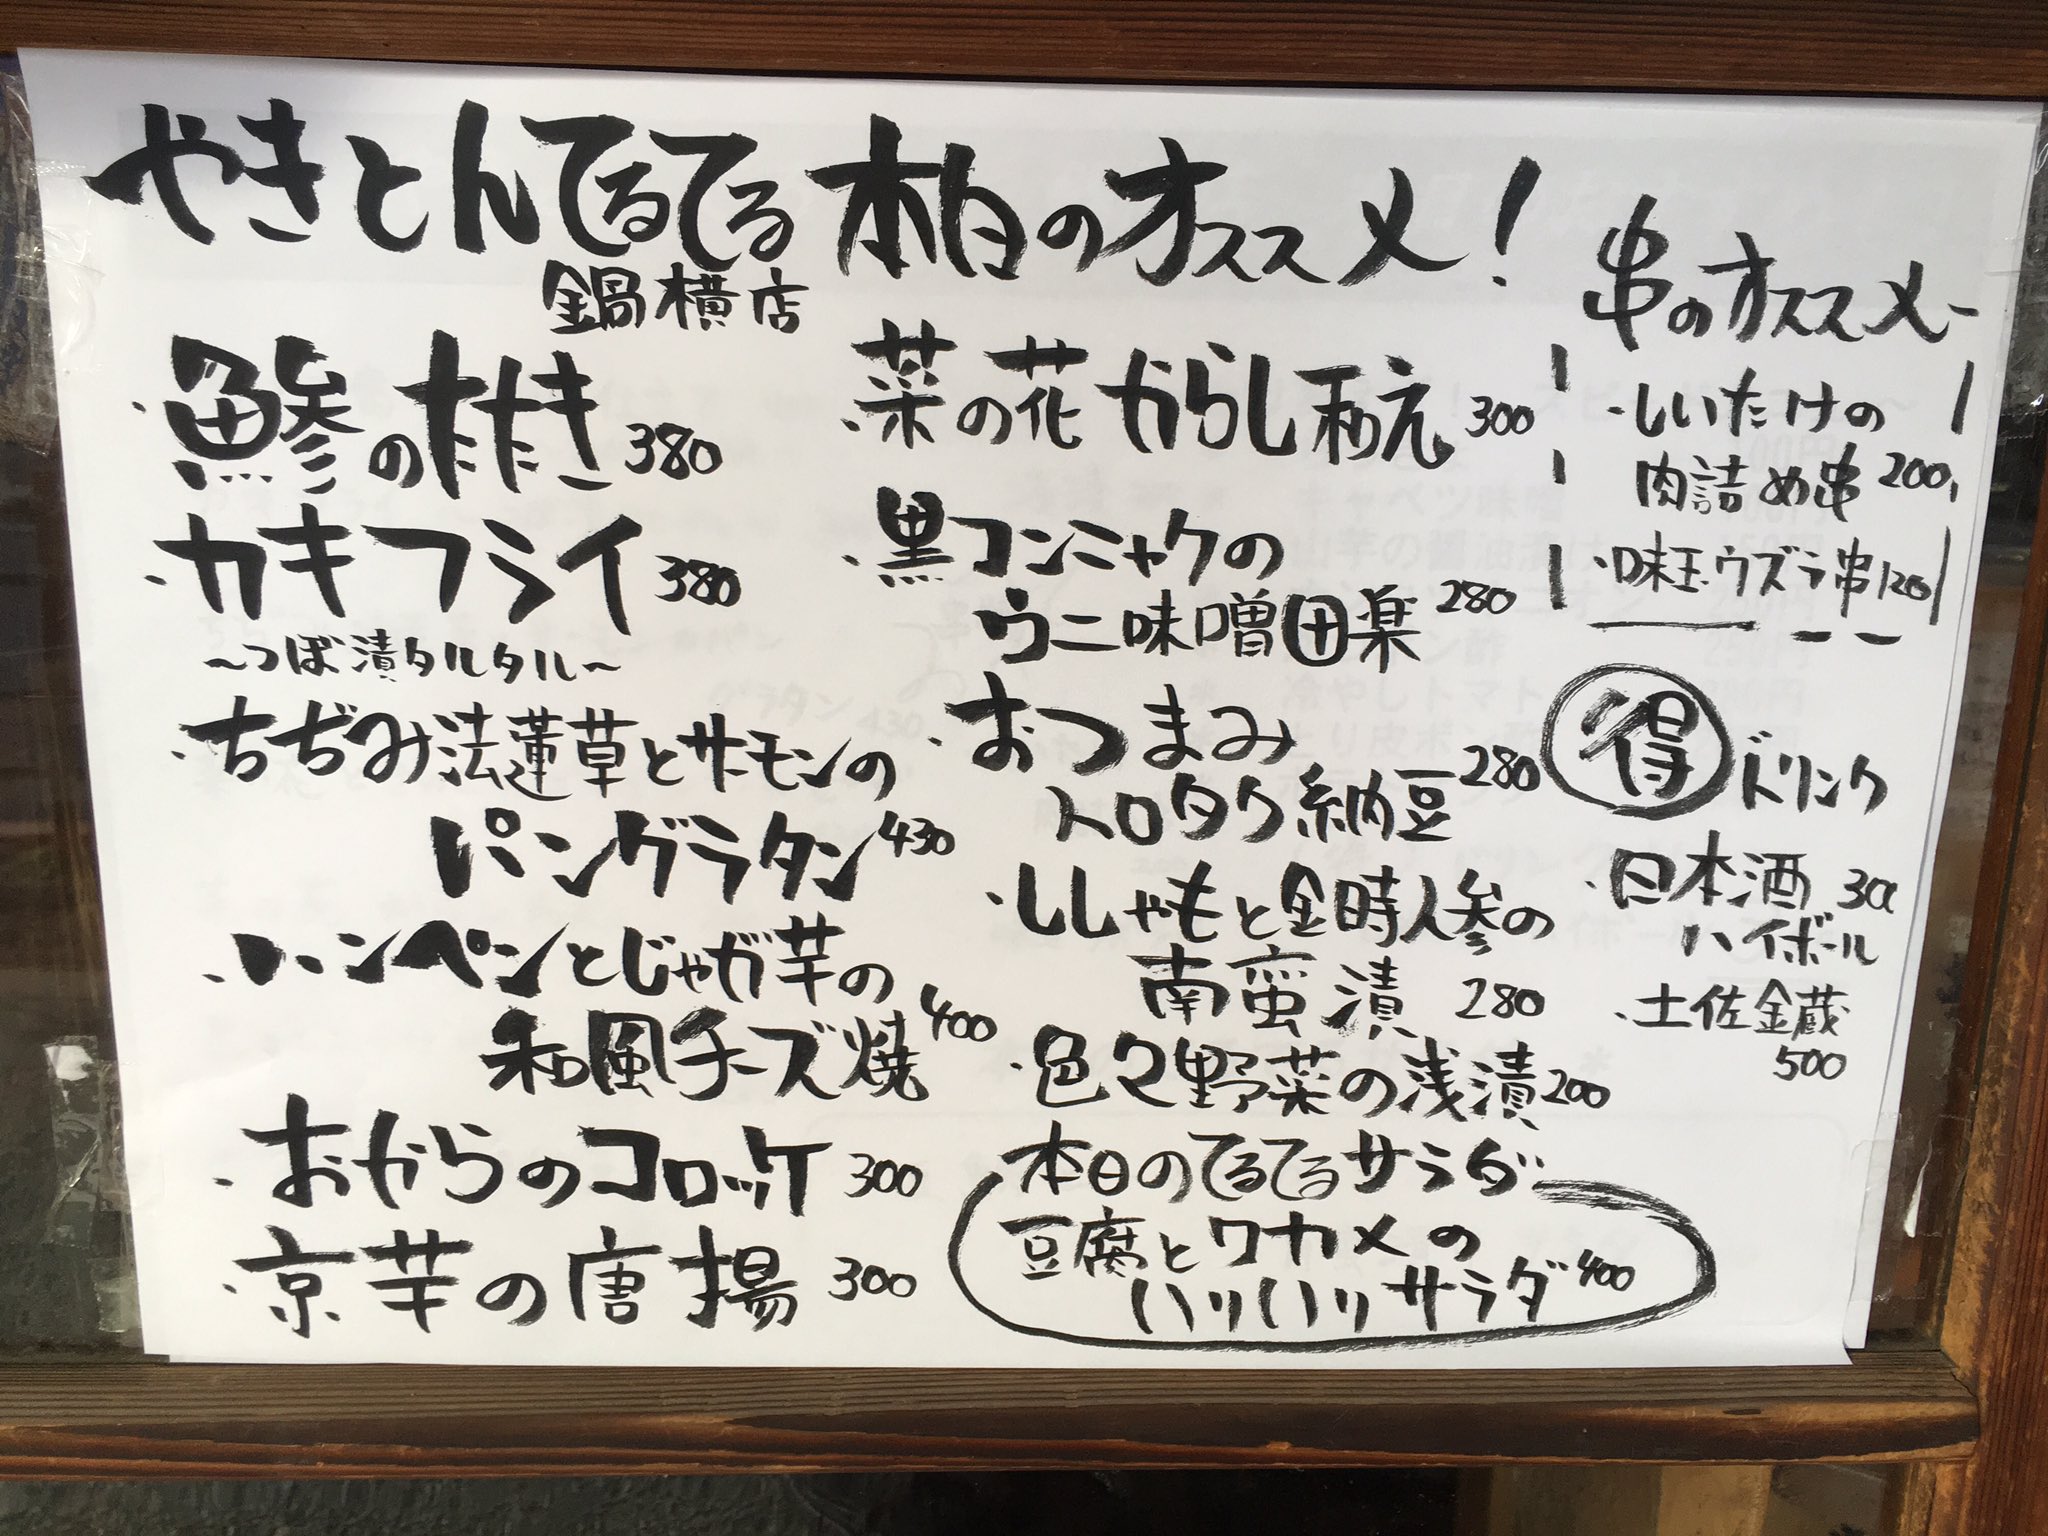 やきとんてるてる 本日のオススメ!
鍋横店
・鯵のたたき 380
・カキフライ 380
~つぼ漬タルタル~
・ちぢみ法蓮草とサーモンの
パングラタン 430
・ハンペンとじゃが芋の
和風チーズ焼 400
・おからのコロッケ 300
・京芋の唐揚 300
・菜の花からし和え 300
・黒コンニャクの
ウニ味噌田楽 280
・おつまみ
トロタク納豆 280
・ししゃもと金時人参の
南蛮漬 280
・色々野菜の浅漬 200
本日のてるてるサラダ
豆腐とワカメの
ハリハリサラダ 400
串のオススメ
・しいたけの
肉詰め串 200
・味玉ウズラ串 120
得 ドリンク
・日本酒
ハイボール
・土佐金蔵
500